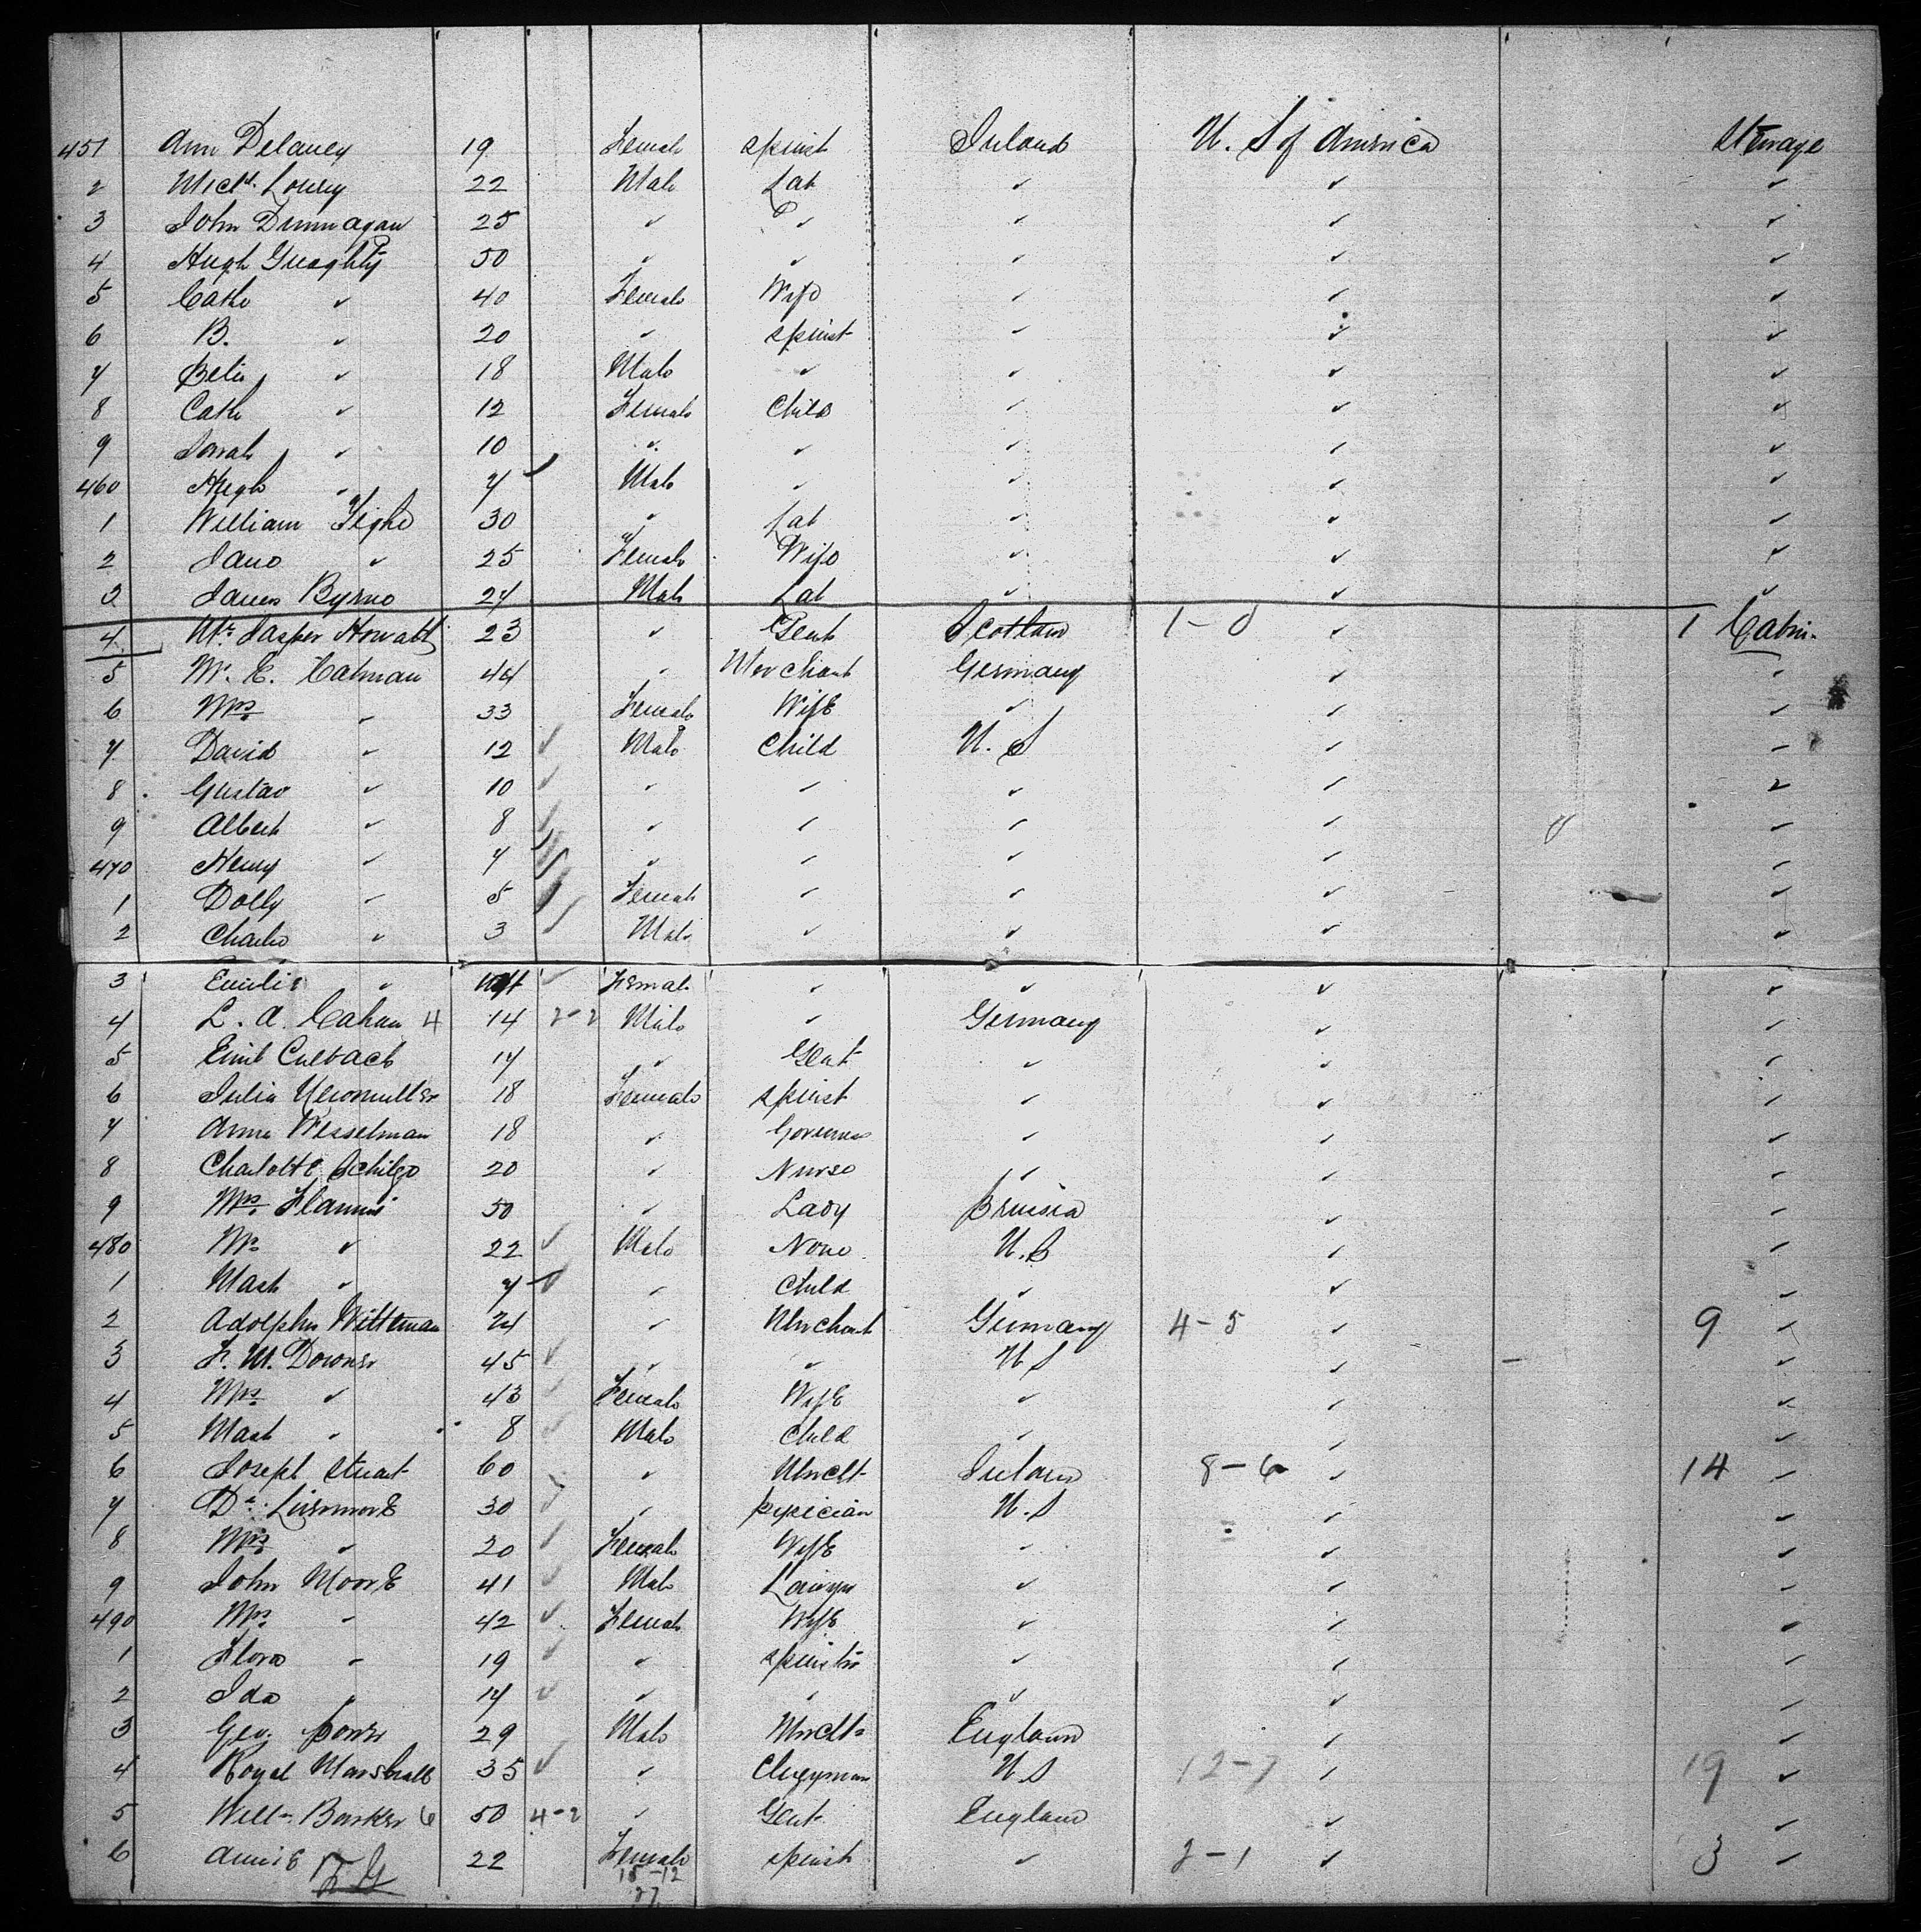 451 Ann Delaney 19 Female Spinst Ireland U. S of America Steerage
2 Micl. Lowry 22 Male Lab ✓ ✓ ✓
3 John Dunnagan 25 ✓ ✓ ✓ ✓ ✓
4 Hugh Greaghty 50 ✓ ✓ ✓ ✓ ✓
5 Cathe ✓ 40 Female Wife ✓ ✓ ✓
6 B. ✓ 20 ✓ Spinst ✓ ✓ ✓
7 ✓ 18 Male ✓ ✓ ✓ ✓
8 Cath ✓ 12 Female Child ✓ ✓ ✓
9 Sarah ✓ 10 ✓ ✓ ✓ ✓ ✓
460 Hugh ✓ 7 Male ✓ ✓ ✓ ✓
1 William Tighe 30 ✓ Lab ✓ ✓ ✓
2 Jane ✓ 25 Female Wife ✓ ✓ ✓
3 James Byrne 24 Male Lab ✓ ✓ ✓
4 Mr. Jasper Howatt 23 ✓ Gent Scotland 1-0 ✓ 1 Cabin.
5 Mr. E. Calman 44 ✓ Merchant Germany ✓ ✓
6 Mrs ✓ 33 Female Wife ✓ ✓ ✓
7 David ✓ 12 ✓ Male Child U. S ✓ ✓
8 Gustav ✓ 10 ✓ ✓ ✓ ✓ ✓ ✓
9 Albert ✓ 8 ✓ ✓ ✓ ✓ ✓ ✓
470 Henry ✓ 7 ✓ ✓ ✓ ✓ ✓
1 Dolly ✓ 5 Female ✓ ✓ ✓ ✓
2 Charles ✓ 3 ✓ Male ✓ ✓ ✓ ✓
3 Emilie ✓ Inft ✓ Female ✓ ✓ ✓ ✓
4 L. A. Cahan 4 14 2-2 Male ✓ Germany ✓ ✓
5 Emil 17 ✓ Gent ✓ ✓ ✓
6 Julia Newmuller 18 Female Spinst ✓ ✓ ✓
7 Anna Wesselman 18 ✓ Governess ✓ ✓ ✓
8 Charlotte 20 ✓ Nurse ✓ ✓ ✓
9 Mrs 50 ✓ Lady Prussia ✓ ✓
480 Mr ✓ 22 ✓ Male None U.S ✓ ✓
1 Mast ✓ 7 ✓ ✓ Child ✓ ✓ ✓
2 Adolphus Witteman 21 ✓ Merchant Germany 4-5 ✓ 9 ✓
3 F. M. Downer 45 ✓ ✓ ✓ U S ✓ ✓
4 Mrs ✓ 43 ✓ Female Wife ✓ ✓ ✓
5 Mast ✓ 8 ✓ Male Child ✓ ✓ ✓
6 Joseph Stuart 60 ✓ Mercht Ireland 8-6 ✓ 14 ✓
7 Dr. Livermore 30 ✓ ✓ Pysician U.S ✓ ✓
8 Mrs ✓ 20 ✓ Female Wife ✓ ✓ ✓
9 John Moore 41 ✓ Male Lawyer ✓ ✓ ✓
490 Mrs ✓ 42 ✓ Female Wife ✓ ✓ ✓
1 Flora ✓ 19 ✓ ✓ Spinstr ✓ ✓ ✓
2 Ida ✓ 17 ✓ ✓ ✓ ✓ ✓ ✓
3 Geo. 29 Male Mercht England ✓ ✓
4 Royal Marshall 35 ✓ ✓ Clergyman U S 12-7 ✓ 19 ✓
5 Willm Barker 6 50 4-2 ✓ Gent England ✓ ✓
6 Annie 22 Female Spinst ✓ 2-1 ✓ 3 ✓
15-12
27